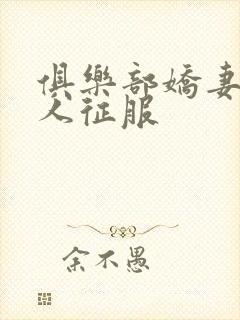 俱樂部嬌妻
人征服
余不愚